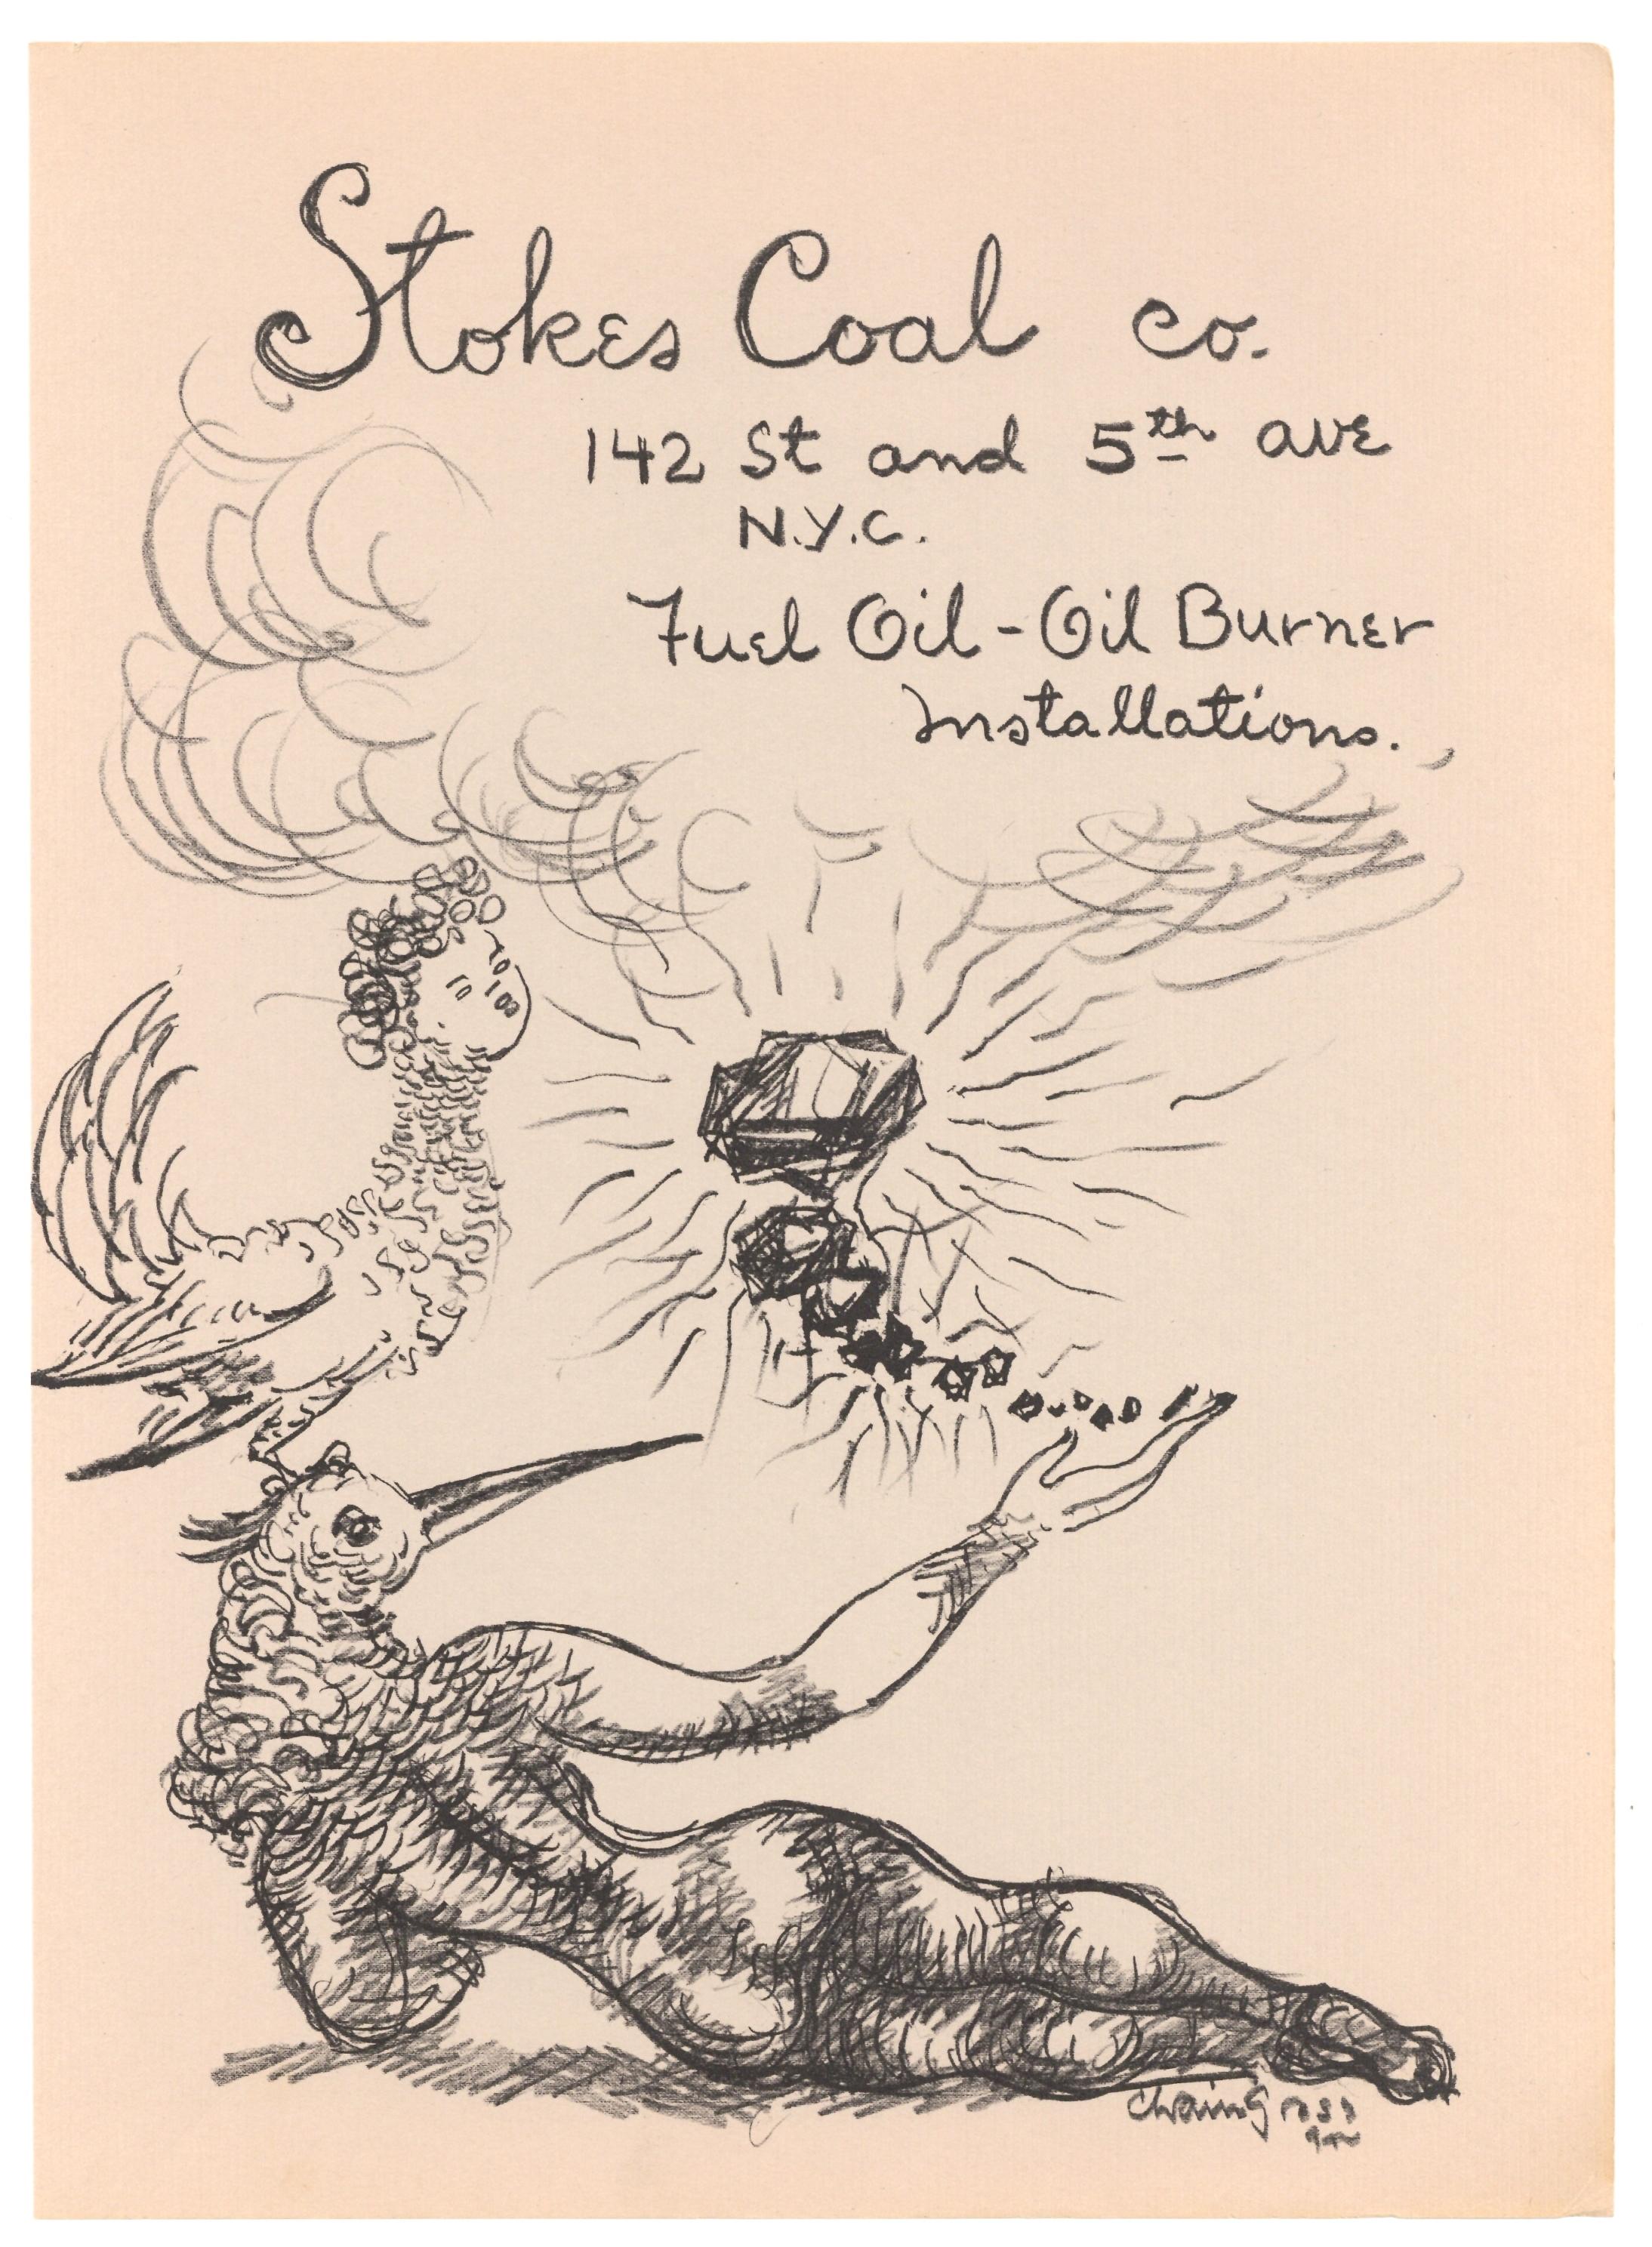 Stokes Coal co.
142 St and 5th ave
N.Y.C.
Fuel Oil - Oil Burner
Installations.
Chaim Gross